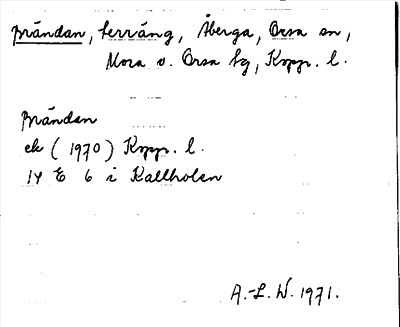 Brändan, terräng, Åberga, Orsa sn,
Mora o. Orsa tg, Kopp. l.
Brändan
ek (1970) Kopp. l.
14 E 6 i Kallholen
A.-L. W. 1971.